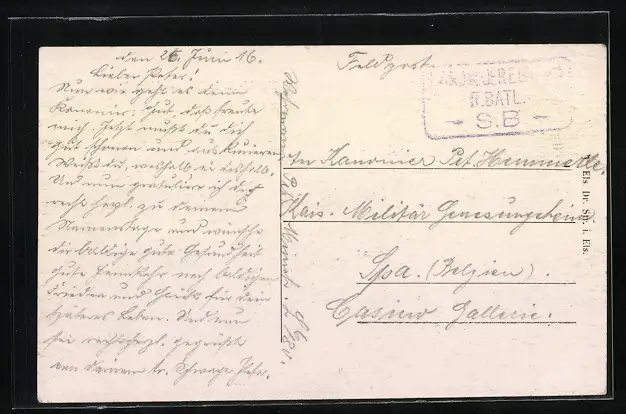 den 26. Juni 16.
Lieber Peter!
Nun wie geht es dem
Kanonier. Gut, das freute
mich. Jetzt mußt du dich
gut schonen und auskurieren.
Weißt du, weshalb
Und nun gratuliere ich dir
recht herzl. zu deinem
Namenstage und wünsche
dir baldige gute Gesundheit
gute Heimkehr nach baldigem
Frieden und Glück für dein
späteres Leben. Und nun
sei recht herzl. gegrüßt
von deinem tr. Schwager Peter.
Feldpost
II. BATL.
- S.B -
An Kanonier Pet. Hemmerle.
Kais. Militär Genesungsheim
Spa. (Belgien).
Casino Gallerie.
Els. Dr. Str. i. Els.